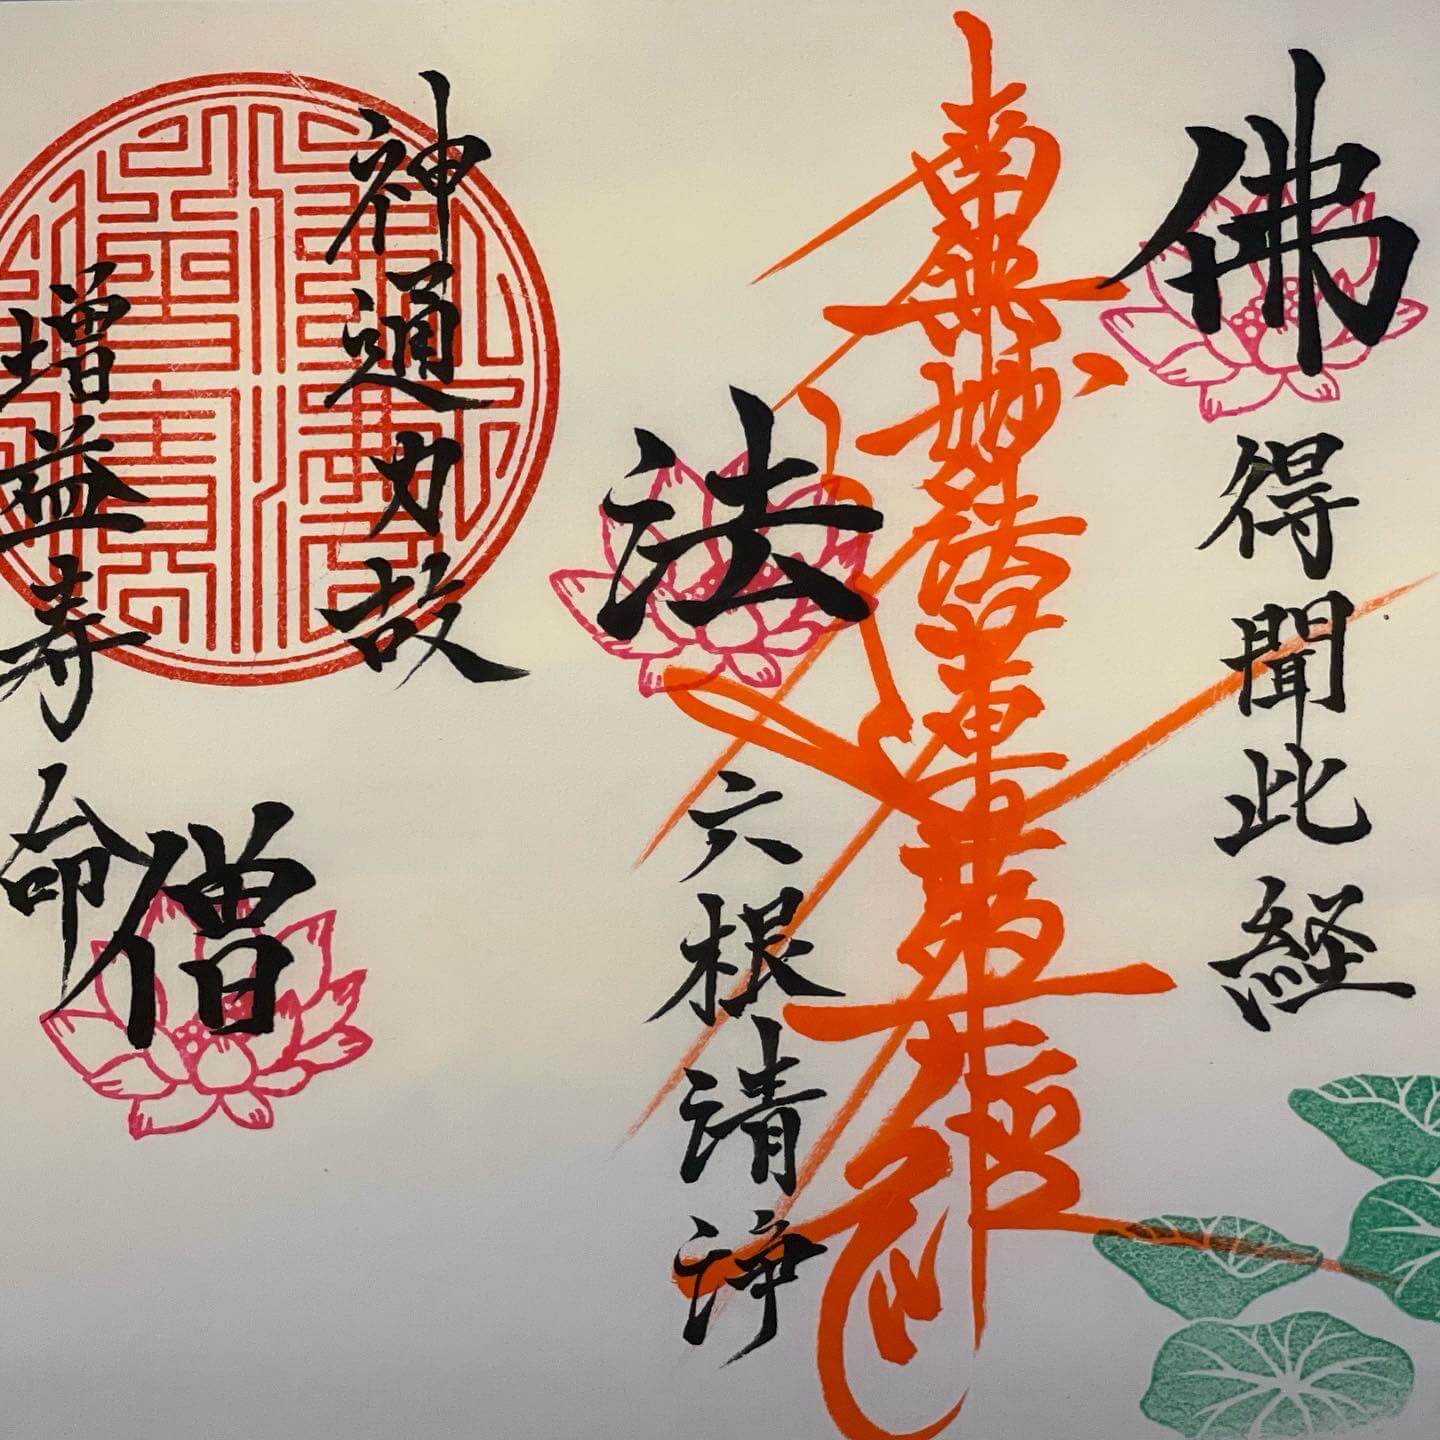 佛
得聞此経
南無妙法蓮華經
法
六根清浄
神通力故
増益寿命
僧